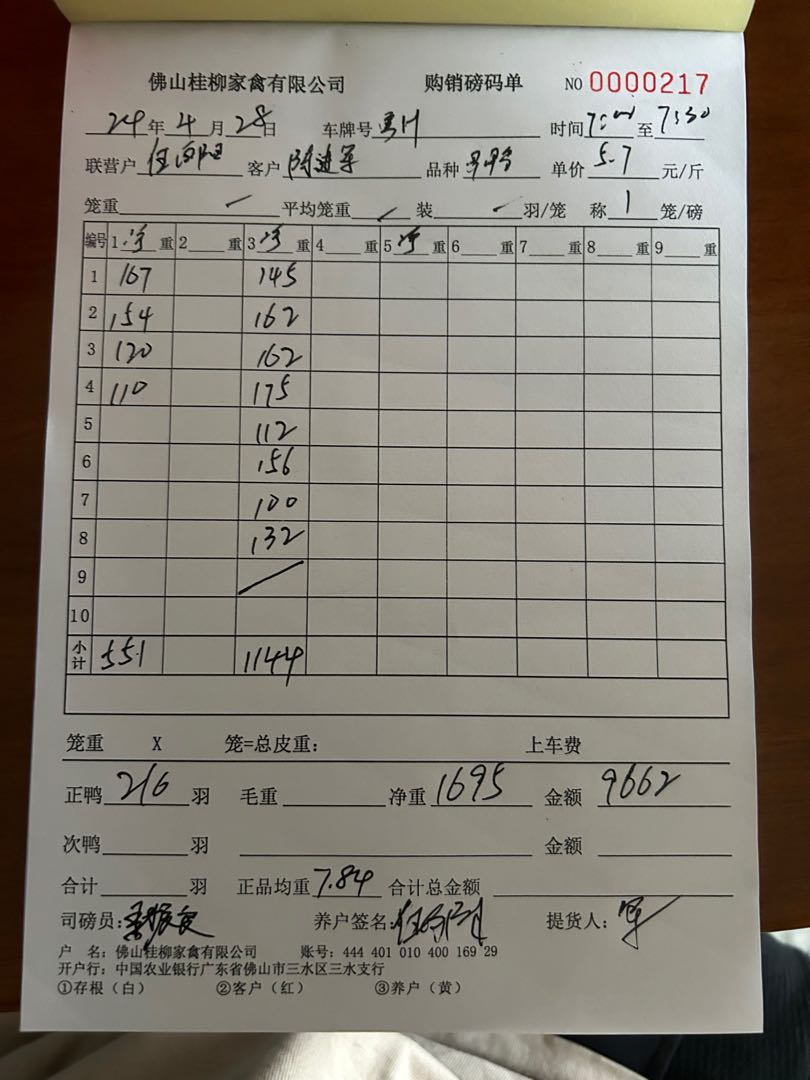 佛山桂柳家禽有限公司 购销磅码单 NO 0000217
24年4月28日 车牌号 时间7:00至7:30
联营户 客户陈进军 品种 单价5.7元/斤
笼重 平均笼重 装 羽/笼 称1笼/磅
编号 1净重 2重 3净重 4重 5净重 6重 7重 8重 9重
1 167 145
2 154 162
3 120 162
4 110 175
5 112
6 156
7 100
8 132
9
10
小计 551 1144
笼重 X 笼=总皮重: 上车费
正鸭216羽 毛重 净重1695 金额9662
次鸭 羽 金额
合计 羽 正品均重7.84 合计总金额
司磅员: 养户签名: 提货人:军
户 名: 佛山桂柳家禽有限公司 账号: 444 401 010 400 169 29
开户行: 中国农业银行广东省佛山市三水区三水支行
①存根(白) ②客户(红) ③养户(黄)